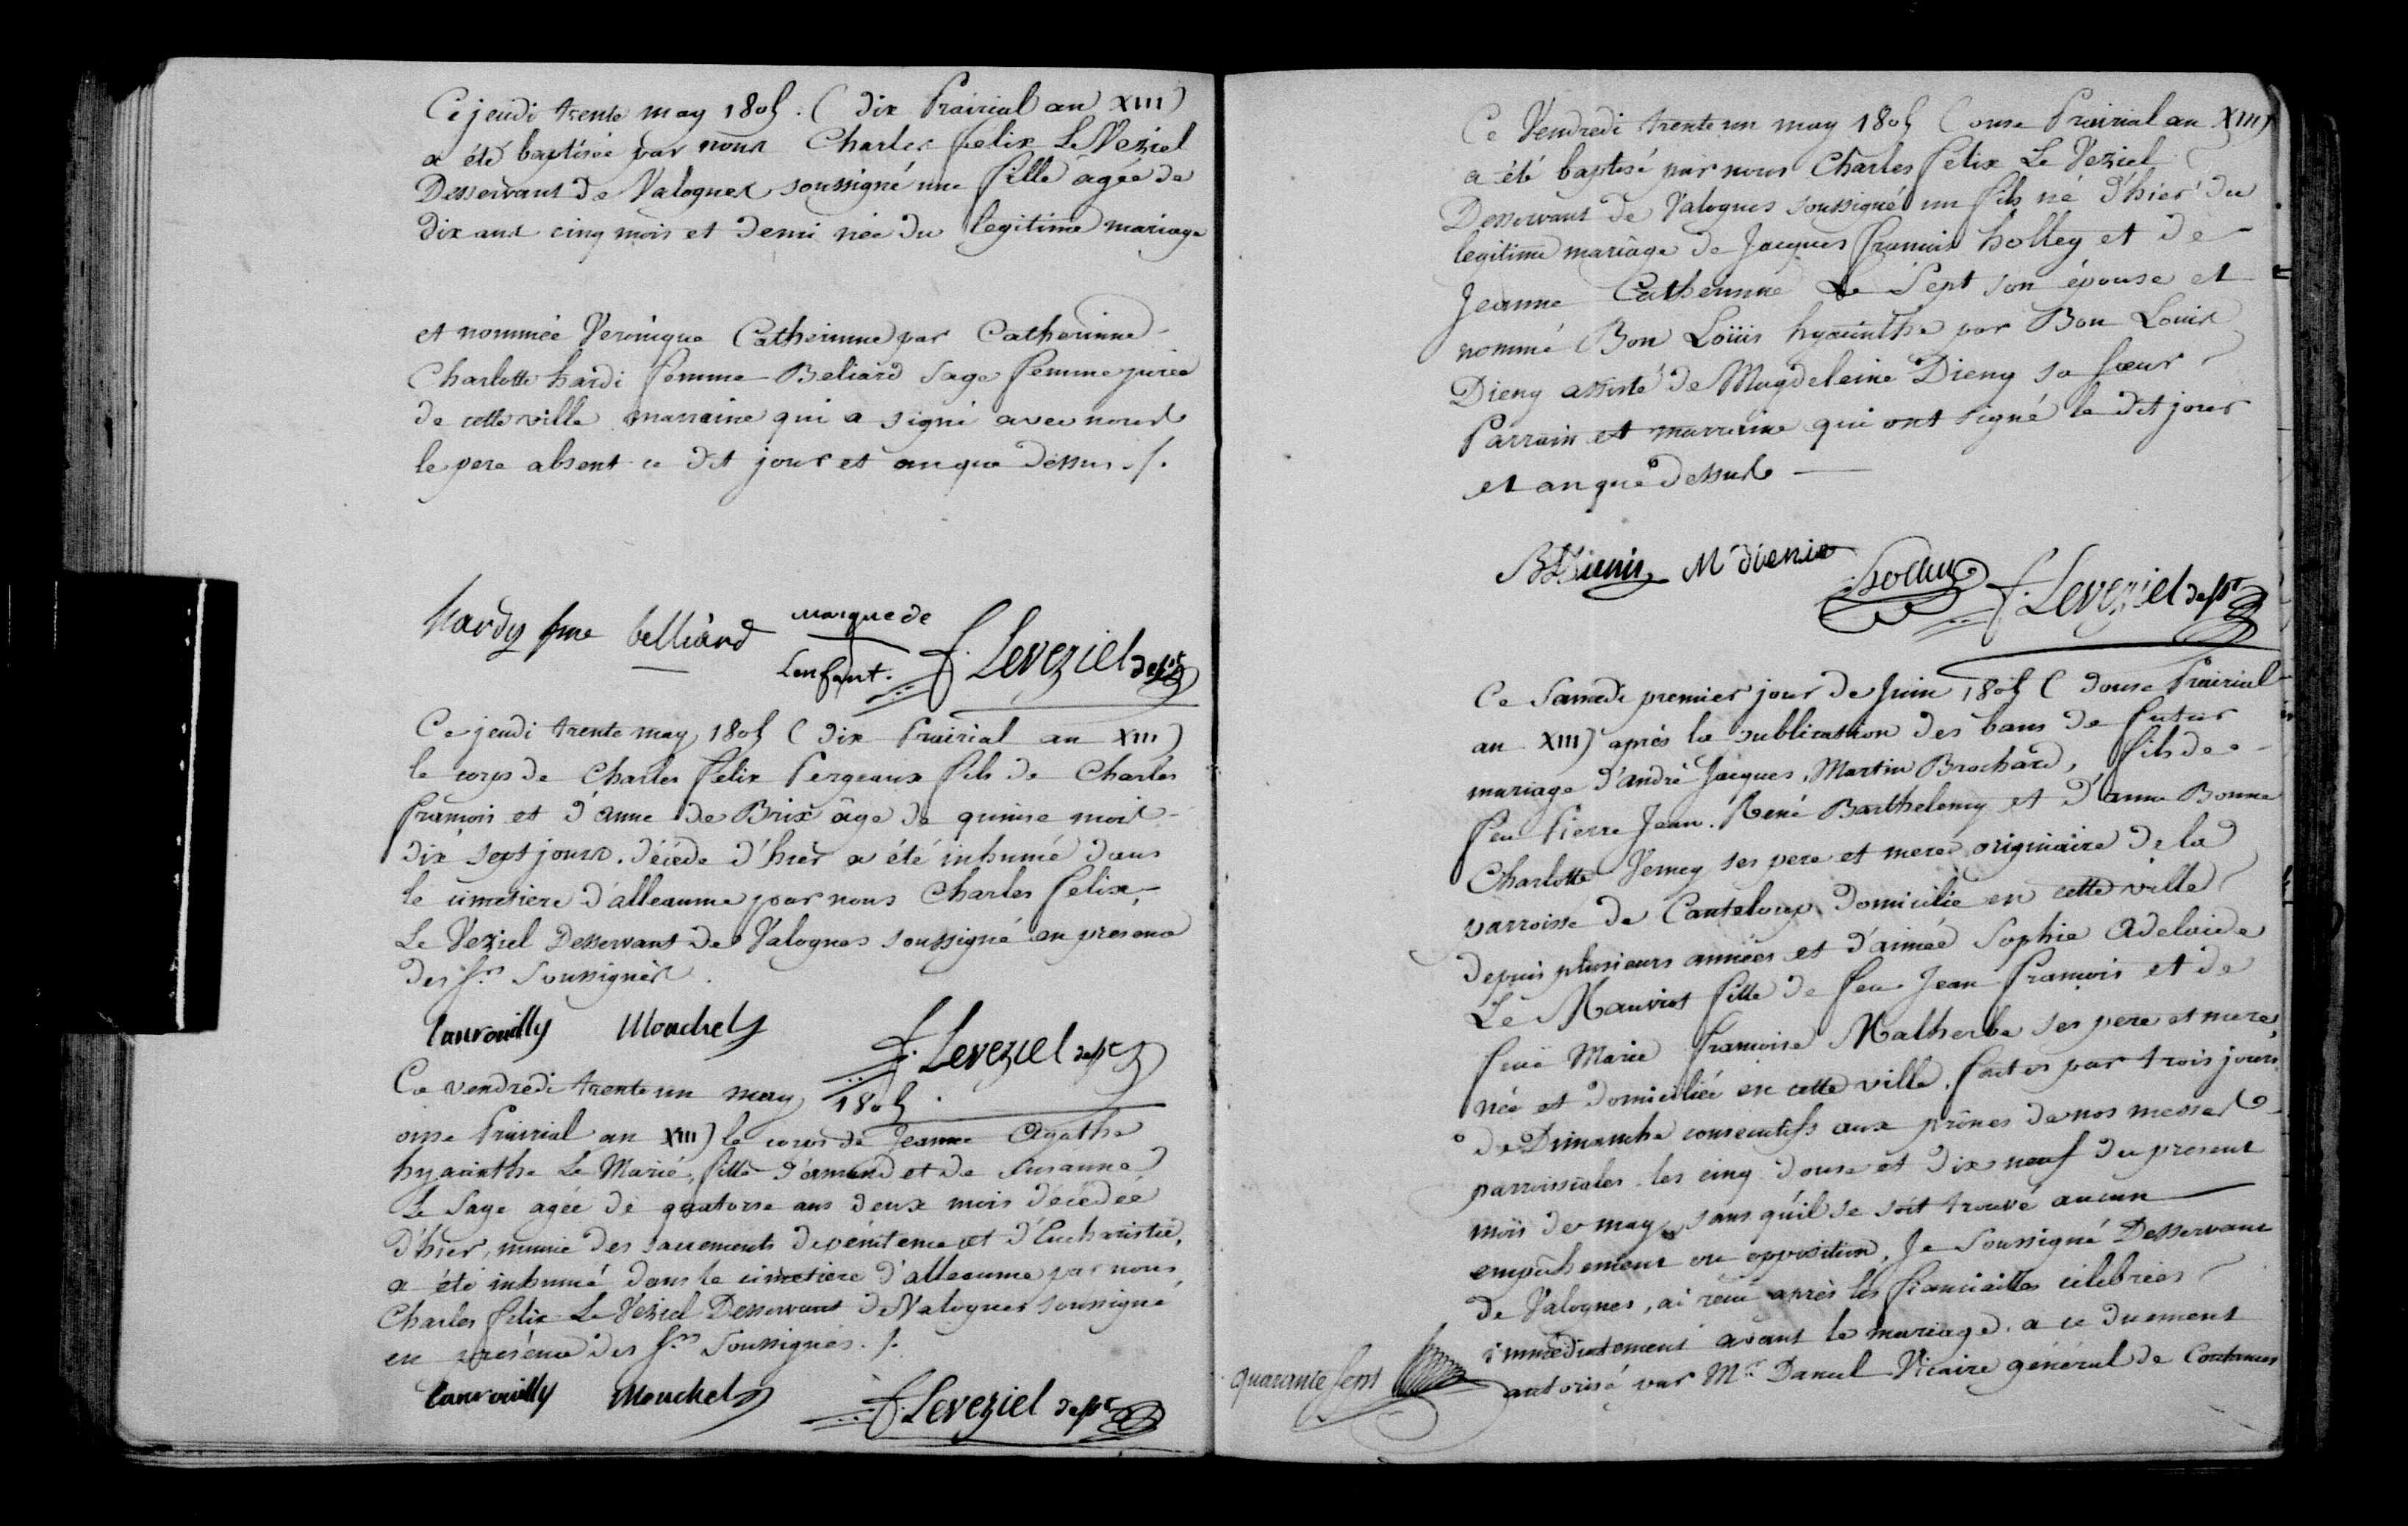 Ce jeudi trente may 1805. (dix Prairial an XIII)
a été baptisée par nous Charles felix Le Veziel
Desservant de Valognes soussigné une fille agée de
dix ans cinq mois et demi née du legitime mariage
et nommée Veronique Catherinne par Catherinne
Charlotte hardi femme Beliard sage femme jurée
de cette ville marraine qui a signé avec nous
le pere absent ce dit jour et an que dessus ./.
hardy fme belliard marque de
Lenfant. f. Leveziel desst
Ce jeudi trente may 1805 (dix Prairial an XIII)
le corps de Charles felix Pergeaux fils de Charles
françois et d'anne de Brix âge de quinse mois
dix sept jours. décédé d'hier a été inhumé dans
le cimetiere d'alleaume par nous Charles felix
Le Veziel Desservant de Valognes soussigné en presence
des srs soussignés.
Lanrouilly Mouchel f. Leveziel desst
Ce vendredi trente un may 1805.
onse Prairial an XIII) le corps de Jeanne Agathe
hyacinthe Le Marié, fille d'amand et de Susanne
Le Sage agée de quatorse ans deux mois décédée
d'hier, munie des sacrements de pénitence et d'Eucharistie,
a été inhumé dans le cimetiere d'alleaume par nous
Charles felix Le Veziel Desservant de Valognes soussigné
en présence des srs soussignés ./.
Lanrouilly Mouchel f. Leveziel desst
Ce Vendredi trente un may 1805 (onse Prairial an XIII)
a été baptisé par nous Charles felix Le Veziel
Desservant de Valognes soussigné un fils né d'hier du
legitime mariage de Jacques françois holley et de
Jeanne Catherinne Le Sept son épouse et
nommé Bon Loüis hyacinthe par Bon Louis
Dieny assisté de Magdeleine Dieny sa sœur
Parrain et marraine qui ont signé le dit jour
et an que dessus
M dienie holley f. Leveziel desst
Ce Samedi premier jour de Juin 1805 (douse Prairial
an XIII) après la publication des bans de futur
mariage d'andré Jacques Martin Brochard, fils de
feu Pierre Jean René Barthelemy et d'anne Bonne
Charlotte Verney ses pere et mere originaire de la
parroisse de Canteloup domicilié en cette ville
depuis plusieurs années et d'aimée Sophie Adelaide
Le Mauviot fille de feu Jean françois et de
feuë Marie françoise Malherbe ses pere et mere,
née et domiciliée en cette ville, faites par trois jours
de Dimanche consecutifs aux prônes de nos messes
parroissiales les cinq douse et dix neuf du present
mois de may sans qu'il se soit trouvé aucun
empêchement ou opposition, Je Soussigné Desservant
de Valognes, ai recu après les fiancailles célebrées
immediatement avant le mariage, a ce duement
autorisé par Mr. Danel Vicaire général de Coutances
quarante sept